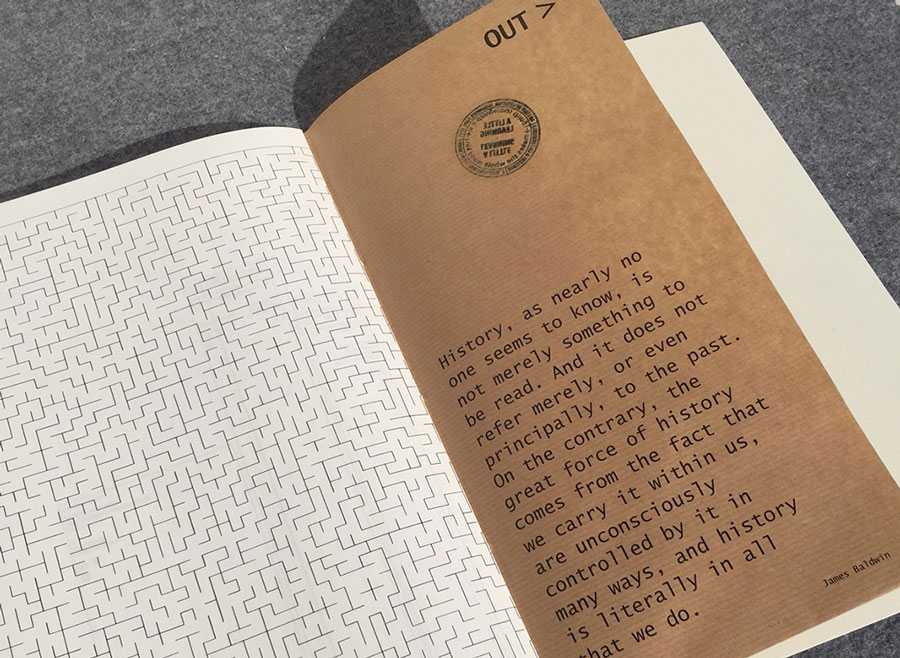 OUT >
LEARNING
A LITTLE
History, as nearly no
one seems to know, is
not merely something to
be read. And it does not
refer merely, or even
principally, to the past.
On the contrary, the
great force of history
comes from the fact that
we carry it within us,
are unconsciously
controlled by it in
many ways, and history
is literally in all
that we do.
James Baldwin